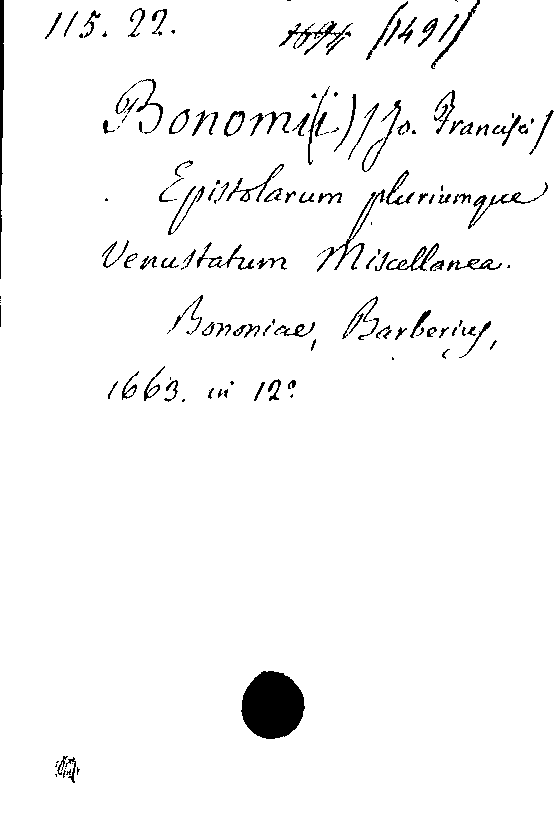 115. 22. (1491)
Bonomi(i) (Jo. Francisci)
Epistolarum pluriumque
Venustatum Miscellanea.
Bononiae, Barberius,
1663. in 12º